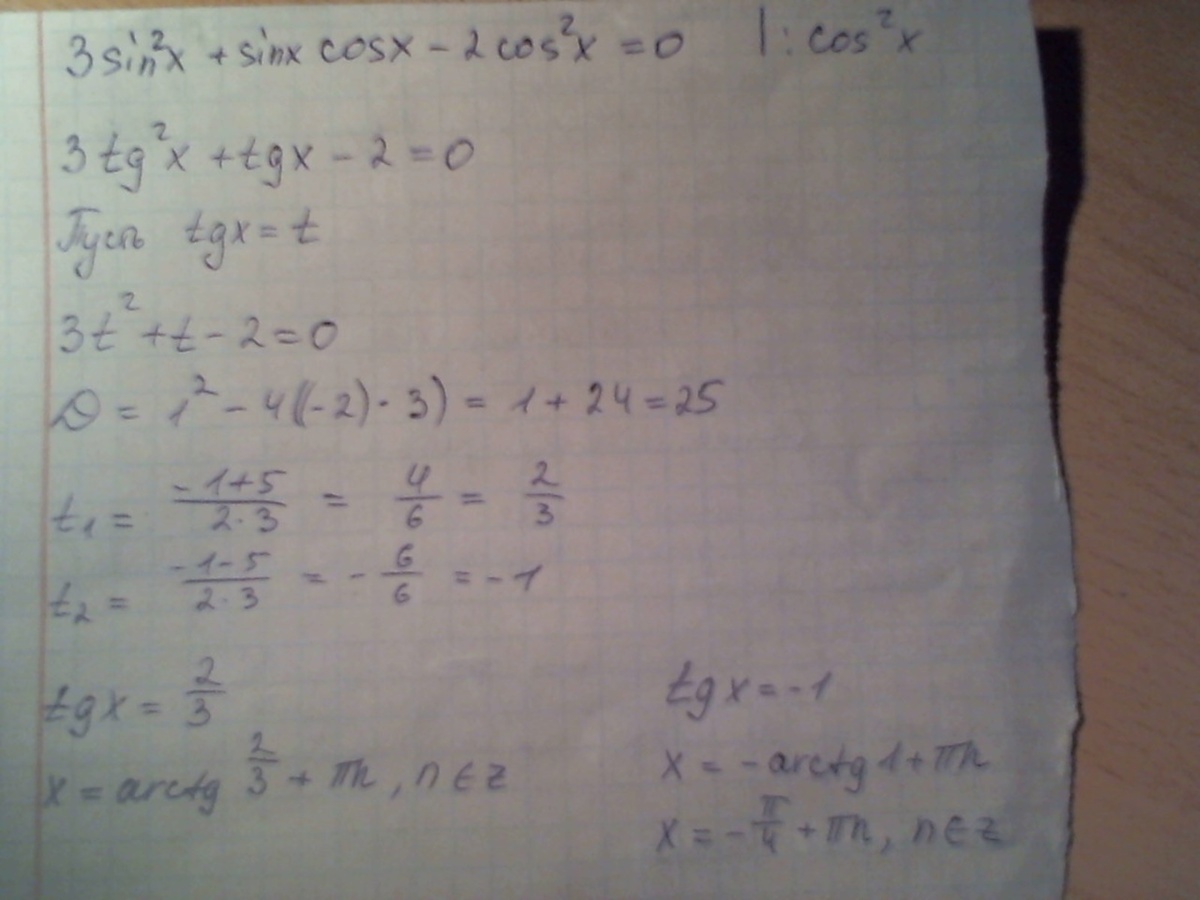 3sin²x + sinx cosx - 2cos²x = 0 | : cos²x
3tg²x + tgx - 2 = 0
Пусть tgx = t
3t² + t - 2 = 0
D = 1² - 4((-2) · 3) = 1 + 24 = 25
t₁ = (-1+5)/(2·3) = 4/6 = 2/3
t₂ = (-1-5)/(2·3) = - 6/6 = -1
tgx = 2/3
x = arctg 2/3 + πn, n ∈ z
tgx = -1
x = -arctg 1 + πn
x = - π/4 + πn, n ∈ z